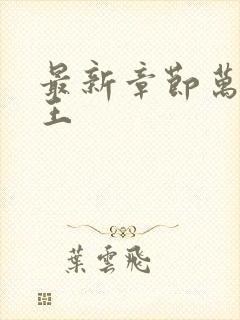 最新章節萬
主
葉雲飛